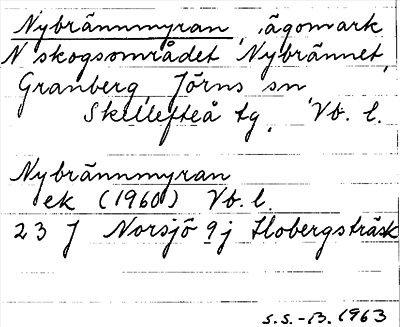 Nybrännmyran, ägomark
N skogsområdet Nybrännet,
Granberg, Jörns sn,
Skellefteå tg, Vb. l.
Nybrännmyran
ek (1960) Vb. l.
23 J Norsjö 9j Flobergsträsk
S.S.-B. 1963